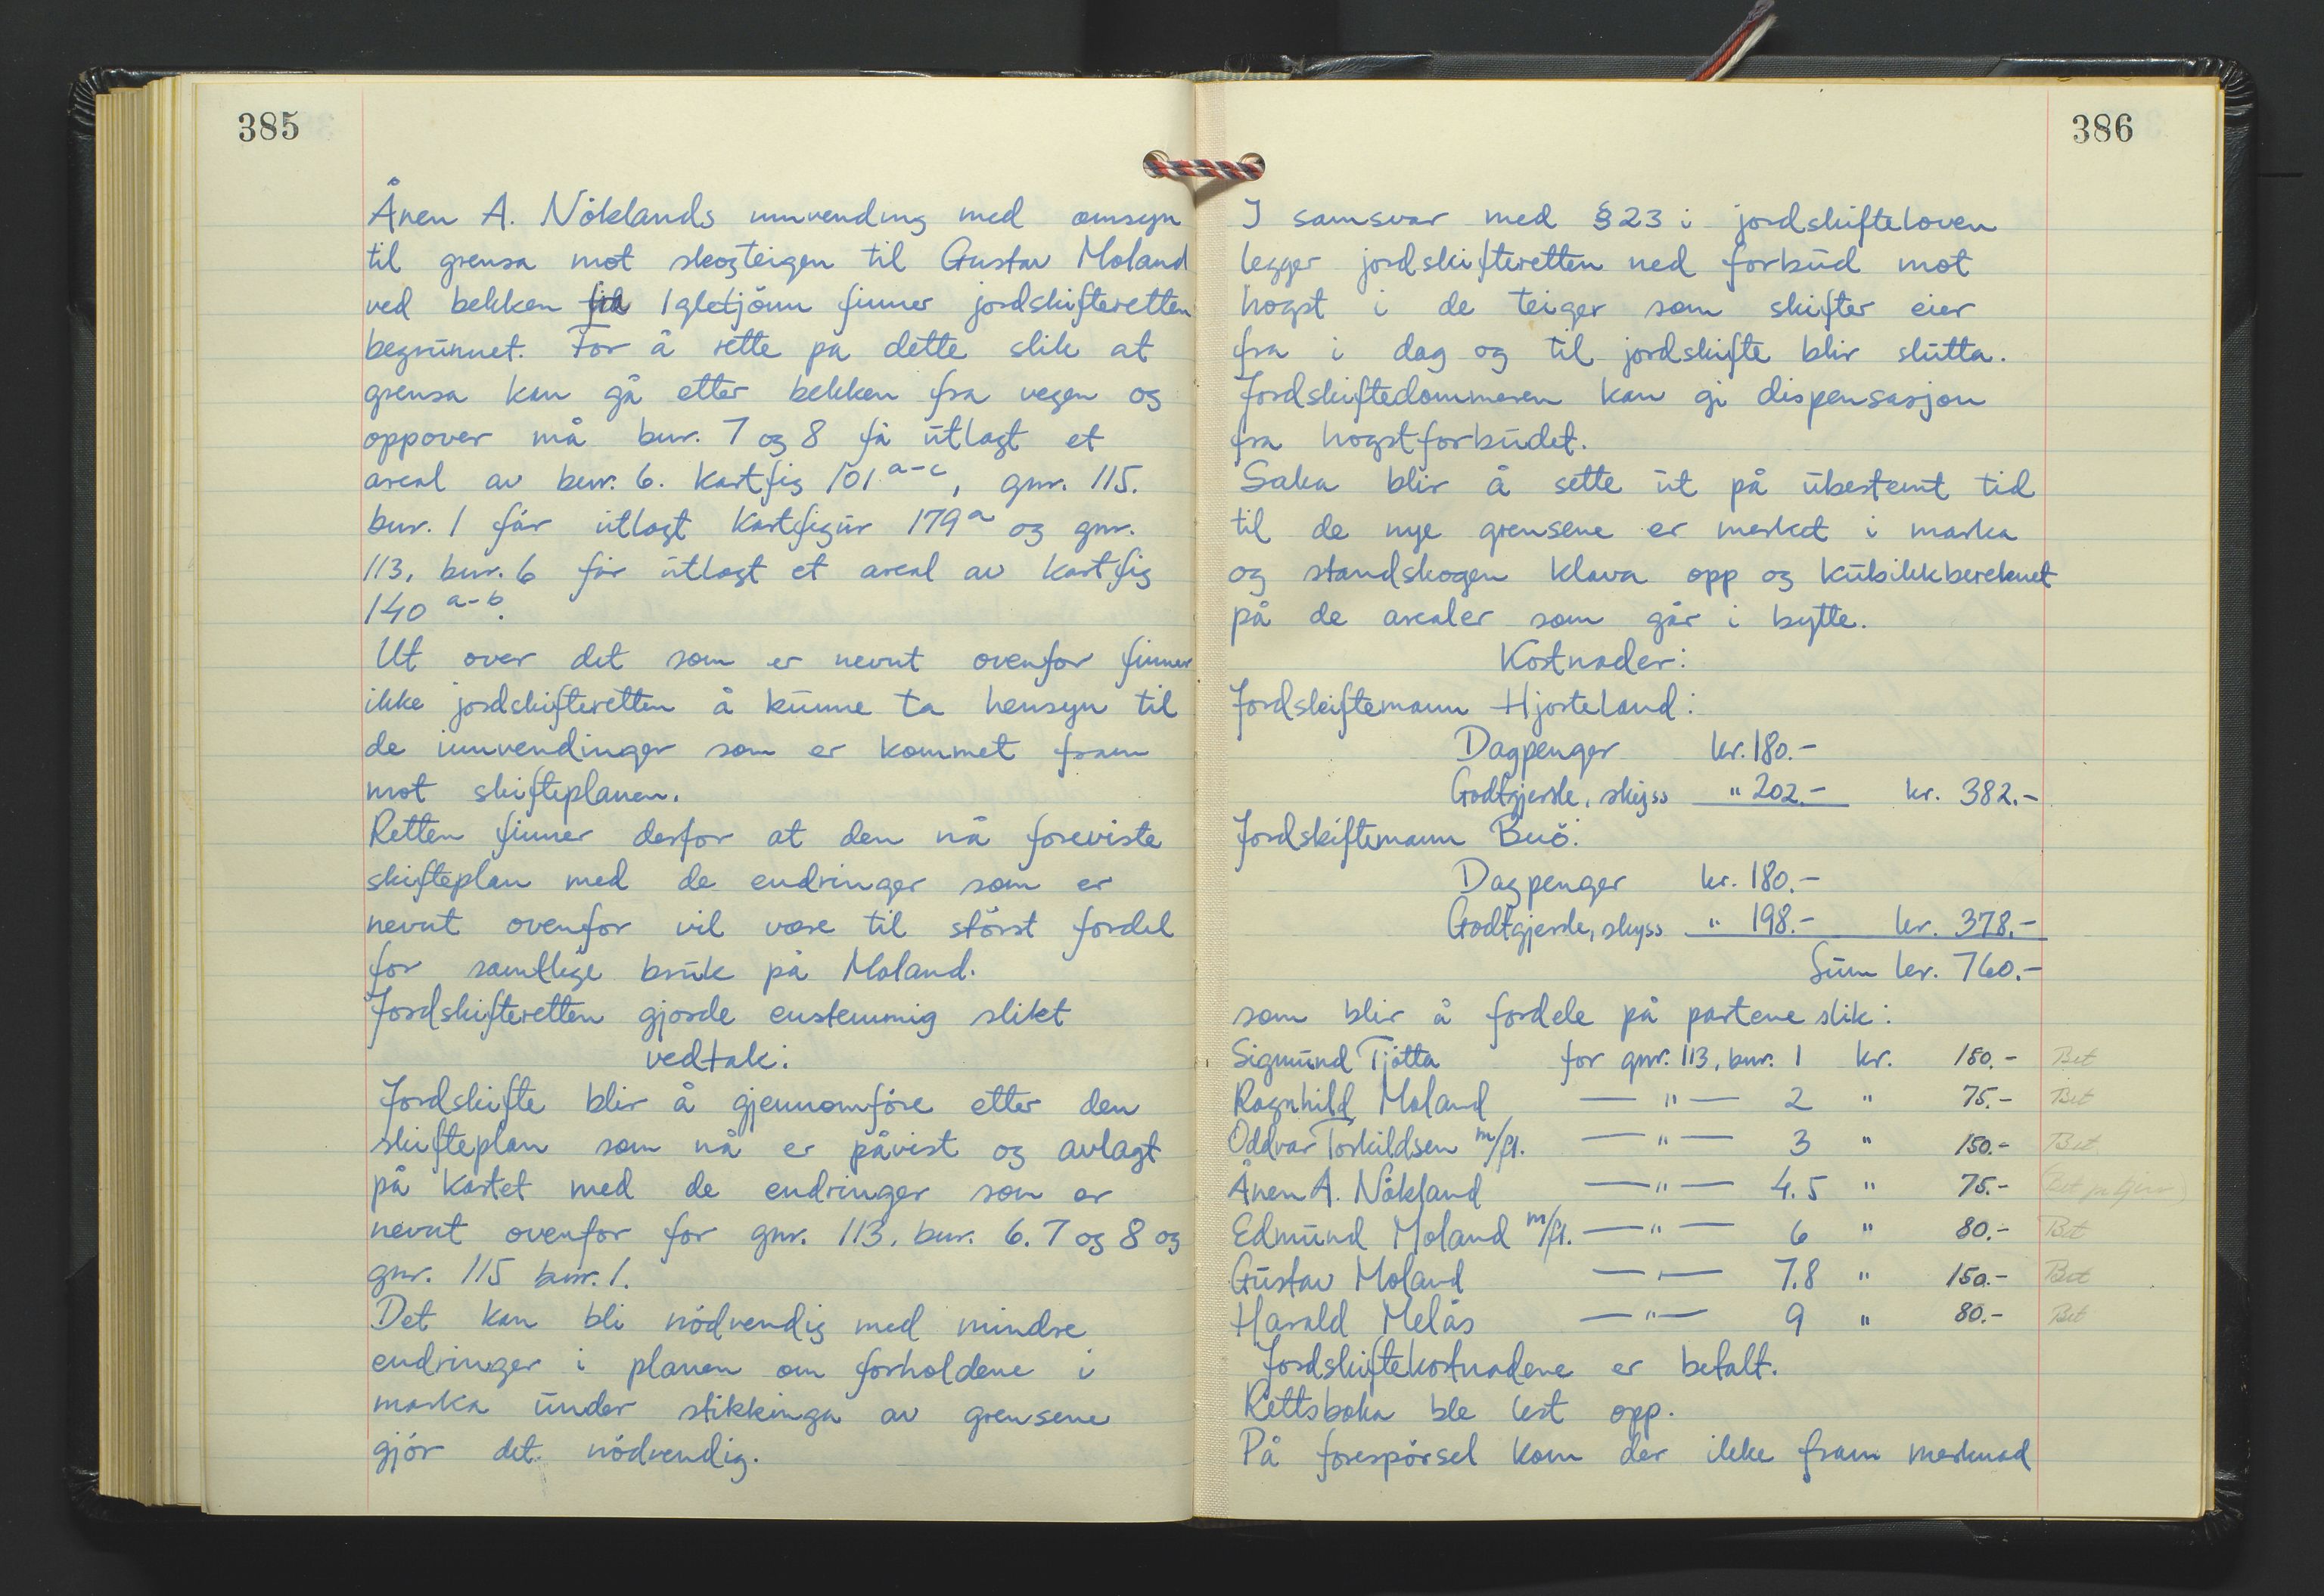 385
Ånen A. Nöklands innvending med omsyn
til grensa mot skogteigen til Gustav Moland
ved bekken til Igletjönn finner jordskifteretten
begrunnet. For å rette på dette slik at
grensa kan gå etter bekken fra vegen og
oppover må bnr. 7 og 8 få utlagt et
areal av bnr. 6. kartfig 101 a-c, gnr. 115.
bnr. 1 får utlagt kartfigur 179 a og gnr.
113, bnr. 6 får utlagt et areal av kartfig
140 a-b.
Ut over det som er nevnt ovenfor finner
ikke jordskifteretten å kunne ta hensyn til
de innvendinger som er kommet fram
mot skifteplanen.
Retten finner derfor at den nå foreviste
skifteplan med de endringer som er
nevnt ovenfor vil være til störst fordel
for samtlige bruk på Moland.
Jordskifteretten gjorde enstemmig slikt
vedtak:
Jordskifte blir å gjennomföre etter den
skifteplan som nå er påvist og avlagt
på kartet med de endringer som er
nevnt ovenfor for gnr. 113, bnr. 6. 7 og 8 og
gnr. 115 bnr. 1.
Det kan bli nödvendig med mindre
endringer i planen om forholdene i
marka under stikkinga av grensene
gjör det nödvendig.
386
I samsvar med § 23 i jordskifteloven
legger jordskifteretten ned forbud mot
hogst i de teiger som skifter eier
fra i dag og til jordskifte blir slutta.
Jordskiftedommeren kan gi dispensasjon
fra hogstforbudet.
Saka blir å sette ut på ubestemt tid
til de nye grensene er merket i marka
og standskogen klava opp og kubikkbereknet
på de arealer som går i bytte.
Kostnader:
Jordskiftemann Hjorteland:
Dagpenger kr. 180.-
Godtgjersle, skyss " 202.- kr. 382.-
Jordskiftemann Buö:
Dagpenger kr. 180.-
Godtgjersle, skyss " 198.- kr. 378.-
Sum kr. 760.-
som blir å fordele på partene slik:
Sigmund Tjötta for gnr. 113, bnr. 1 kr. 150.- Bet
Ragnhild Moland — " — 2 " 75.- Bet
Oddvar Torkildsen m/fl. — " — 3 " 150.- Bet
Ånen A. Nökland — " — 4.5 " 75.- (Bet
Edmund Moland m/fl. — " — 6 " 80.- Bet
Gustav Moland — " — 7.8 " 150.- Bet
Harald Melås — " — 9 " 80.- Bet
Jordskiftekostnadene er betalt.
Rettsboka ble lest opp.
På forespörsel kom der ikke fram merknad